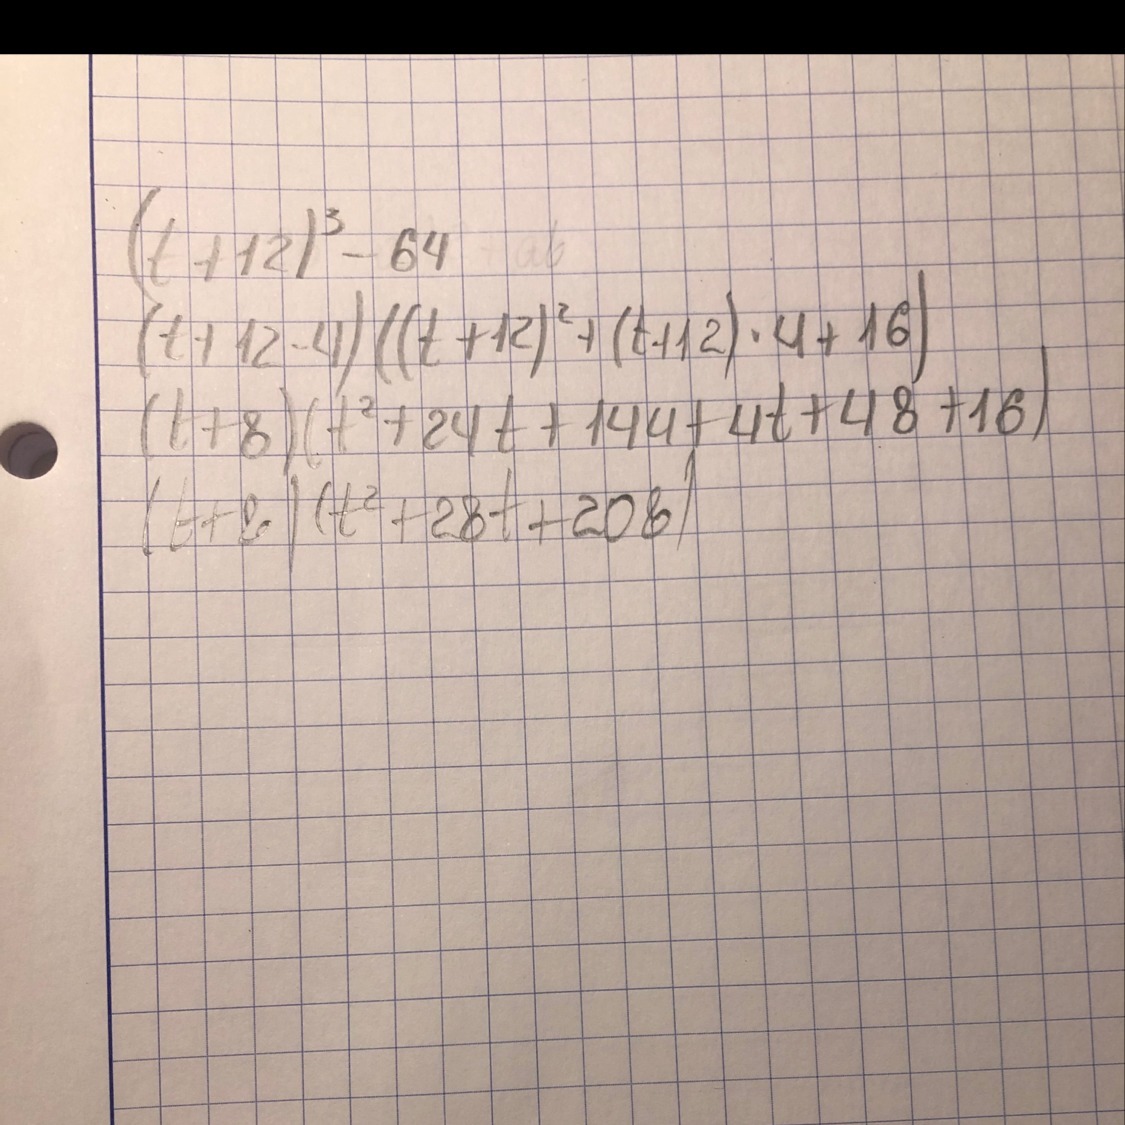 (t+12)³-64
(t+12-4)((t+12)²+(t+12)·4+16)
(t+8)(t²+24t+144+4t+48+16)
(t+8)(t²+28t+208)